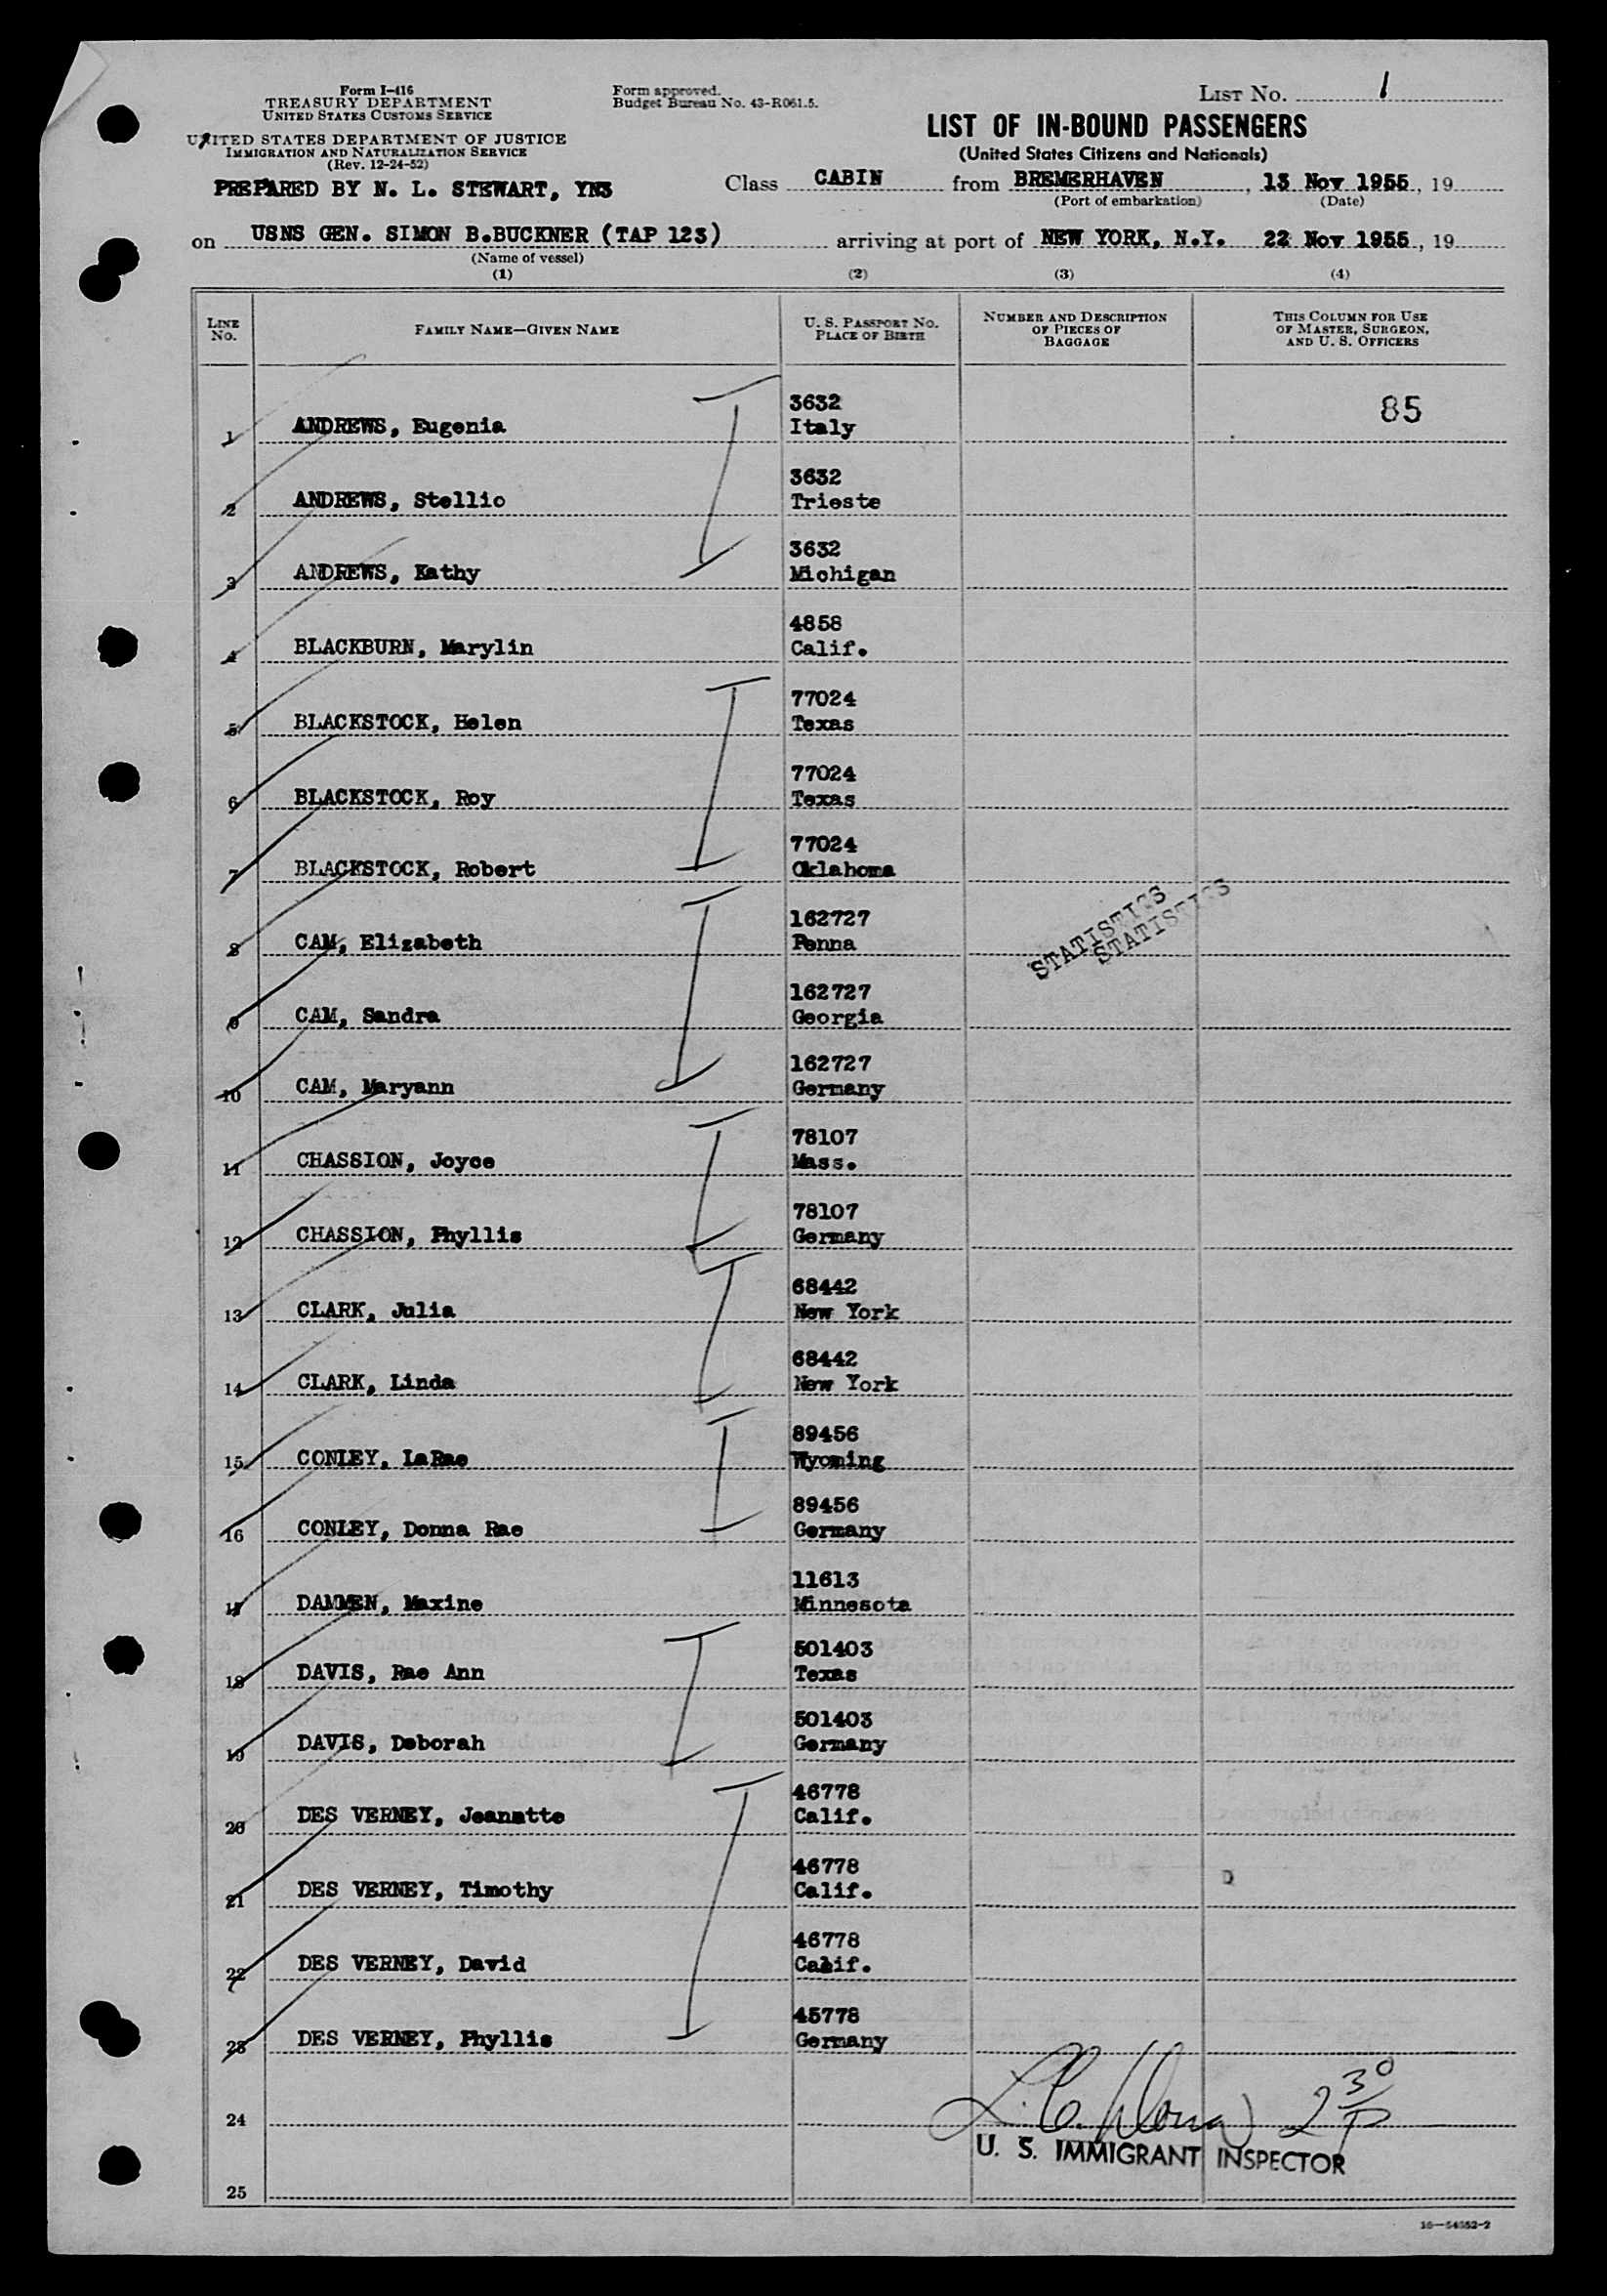 Form I-416
TREASURY DEPARTMENT
UNITED STATES CUSTOMS SERVICE
UNITED STATES DEPARTMENT OF JUSTICE
IMMIGRATION AND NATURALIZATION SERVICE
(Rev. 12-24-52)
PREPARED BY N. L. STEWART, YN3
Form approved.
Budget Bureau No. 43-R061.5.
LIST NO. 1
LIST OF IN-BOUND PASSENGERS
(United States Citizens and Nationals)
Class CABIN from BREMERHAVEN, 13 Nov 1955, 19
(Port of embarkation) (Date)
on USNS GEN. SIMON B.BUCKNER (TAP 123) arriving at port of NEW YORK, N.Y. 22 Nov 1955, 19
(Name of vessel)
(1) (2) (3) (4)
LINE NO. FAMILY NAME—GIVEN NAME U. S. PASSPORT NO. PLACE OF BIRTH NUMBER AND DESCRIPTION OF PIECES OF BAGGAGE THIS COLUMN FOR USE OF MASTER, SURGEON, AND U. S. OFFICERS
3632 85
1 ANDREWS, Eugenia Italy
3632
2 ANDREWS, Stellio Trieste
3632
3 ANDREWS, Kathy Michigan
4858
4 BLACKBURN, Marylin Calif.
77024
5 BLACKSTOCK, Helen Texas
77024
6 BLACKSTOCK, Roy Texas
77024
7 BLACKSTOCK, Robert Oklahoma
162727
8 CAM, Elizabeth Penna
STATISTICS
STATISTICS
162727
9 CAM, Sandra Georgia
162727
10 CAM, Maryann Germany
78107
11 CHASSION, Joyce Mass.
78107
12 CHASSION, Phyllis Germany
68442
13 CLARK, Julia New York
68442
14 CLARK, Linda New York
89456
15 CONLEY, LaRae Wyoming
89456
16 CONLEY, Donna Rae Germany
11613
17 DAMMEN, Maxine Minnesota
501403
18 DAVIS, Rae Ann Texas
501403
19 DAVIS, Deborah Germany
46778
20 DES VERNEY, Jeanatte Calif.
46778
21 DES VERNEY, Timothy Calif.
46778
22 DES VERNEY, David Calif.
45778
23 DES VERNEY, Phyllis Germany
24
2 30/P
U. S. IMMIGRANT INSPECTOR
25